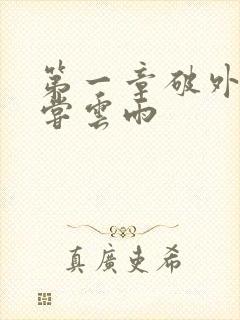 第一章破外
嘗雲雨
真廣史希